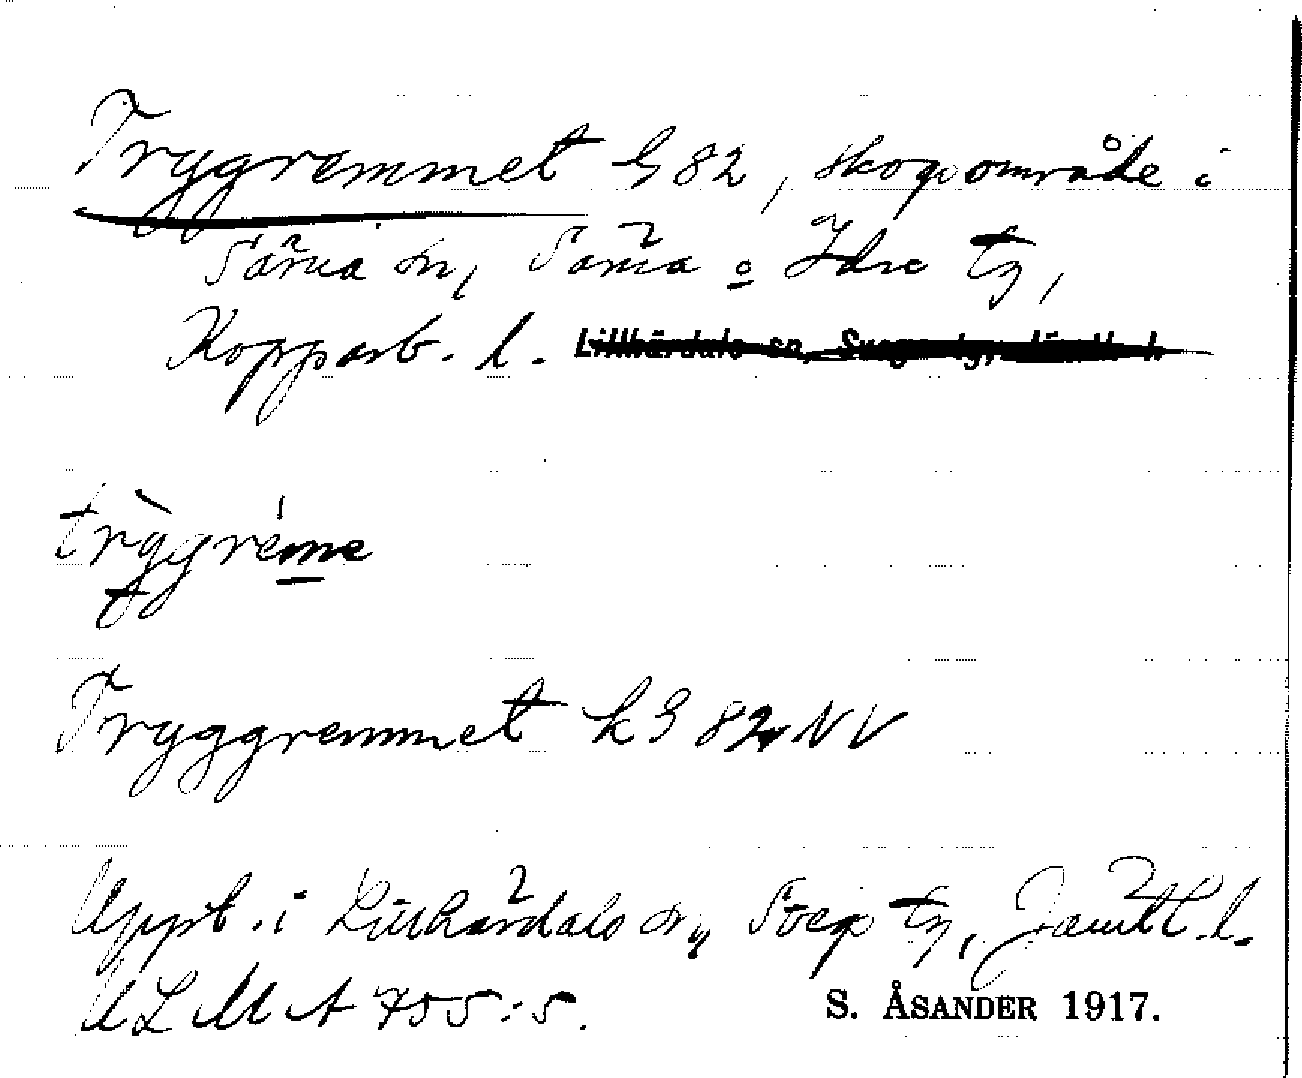 Trygremmet G 82, skogsområde i
Särna sn, Särna o Idre tg,
Kopparb. l. Lillhärdals sn, Svegs tg, Jämtl. l.
trỳgréme
Tryggremmet kG 82 NV
Uppt. i Lillhärdals sn, Svegs tg, Jämtl. l.
ULMA 755:5.
S. ÅSANDER 1917.